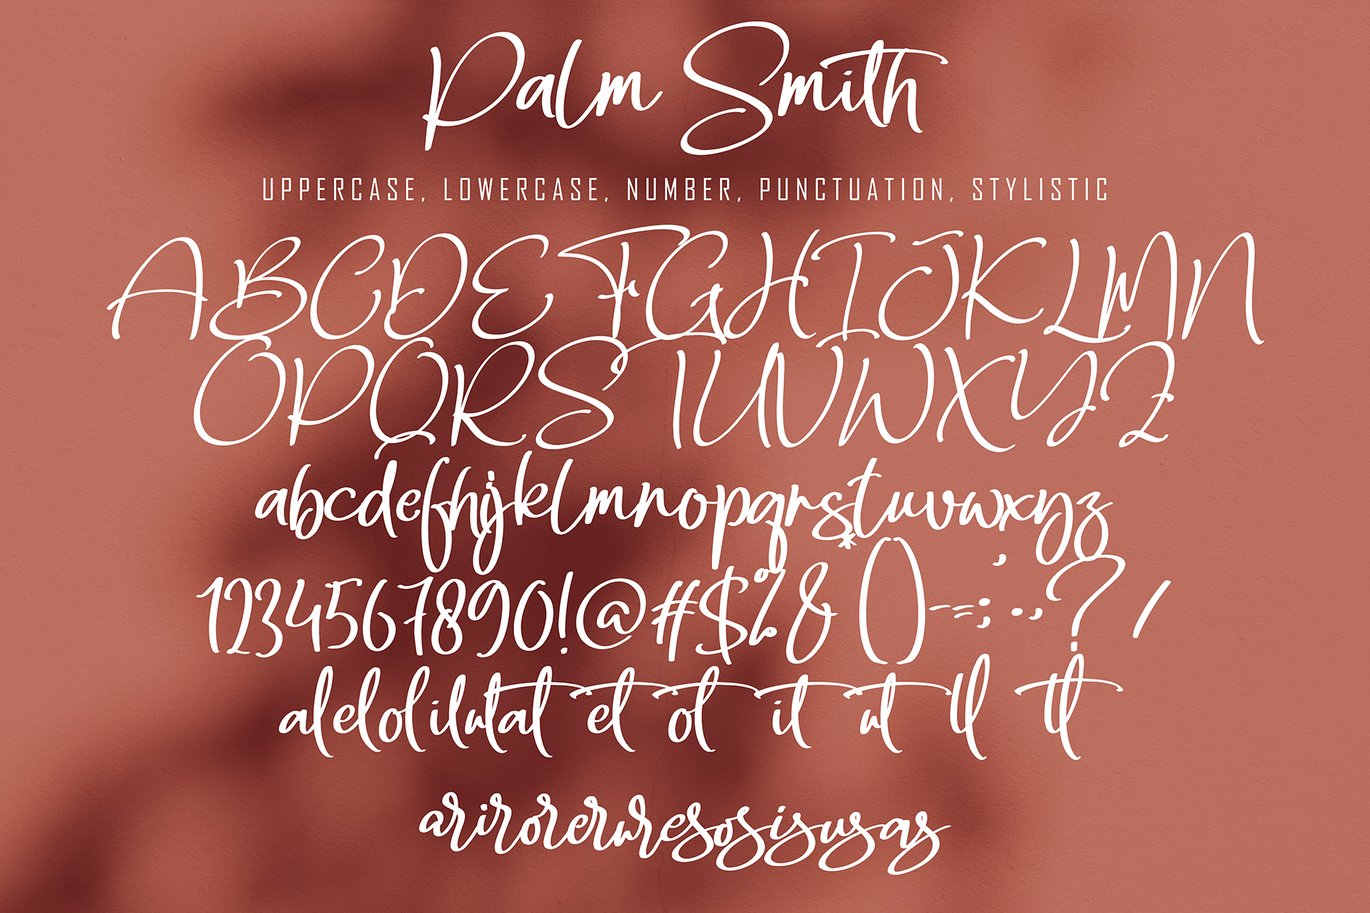 Palm Smith
UPPERCASE, LOWERCASE, NUMBER, PUNCTUATION, STYLISTIC
ABCDEFGHIJKLMN
OPQRSTUVWXYZ
abcdefhijklmnopqrstuvwxyz
1234567890!@#$%^&*()-=;:.,?/
alelolilulat et ot it ut ll tt
ariroreruresosisusas